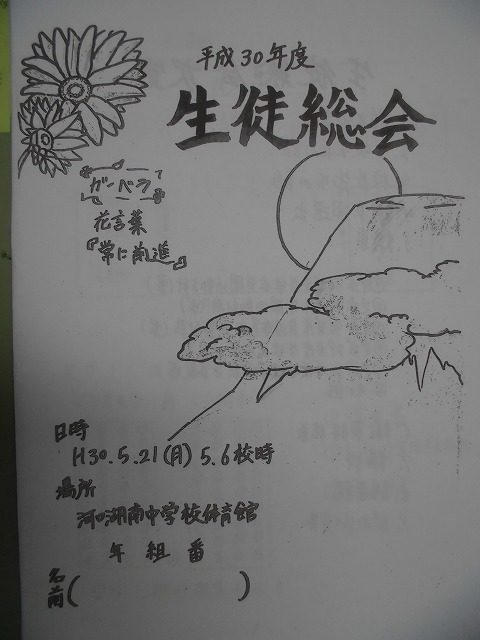 平成30年度
生徒総会
ガーベラ
花言葉
『常に前進』
日時
H30.5.21(月) 5.6校時
場所
河口湖南中学校体育館
年 組 番
名前( )